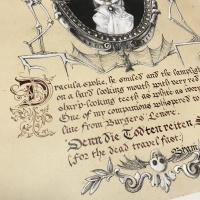 Dracula spoke, he smiled and the lamplight
on a hard cooking mouth with very red
sharp-looking teeth as white as ivory
One of my companions whispered to
line from Burger's Lenore.
"Denn die Todten reiten S
(For the dead travel fast.)
Bram